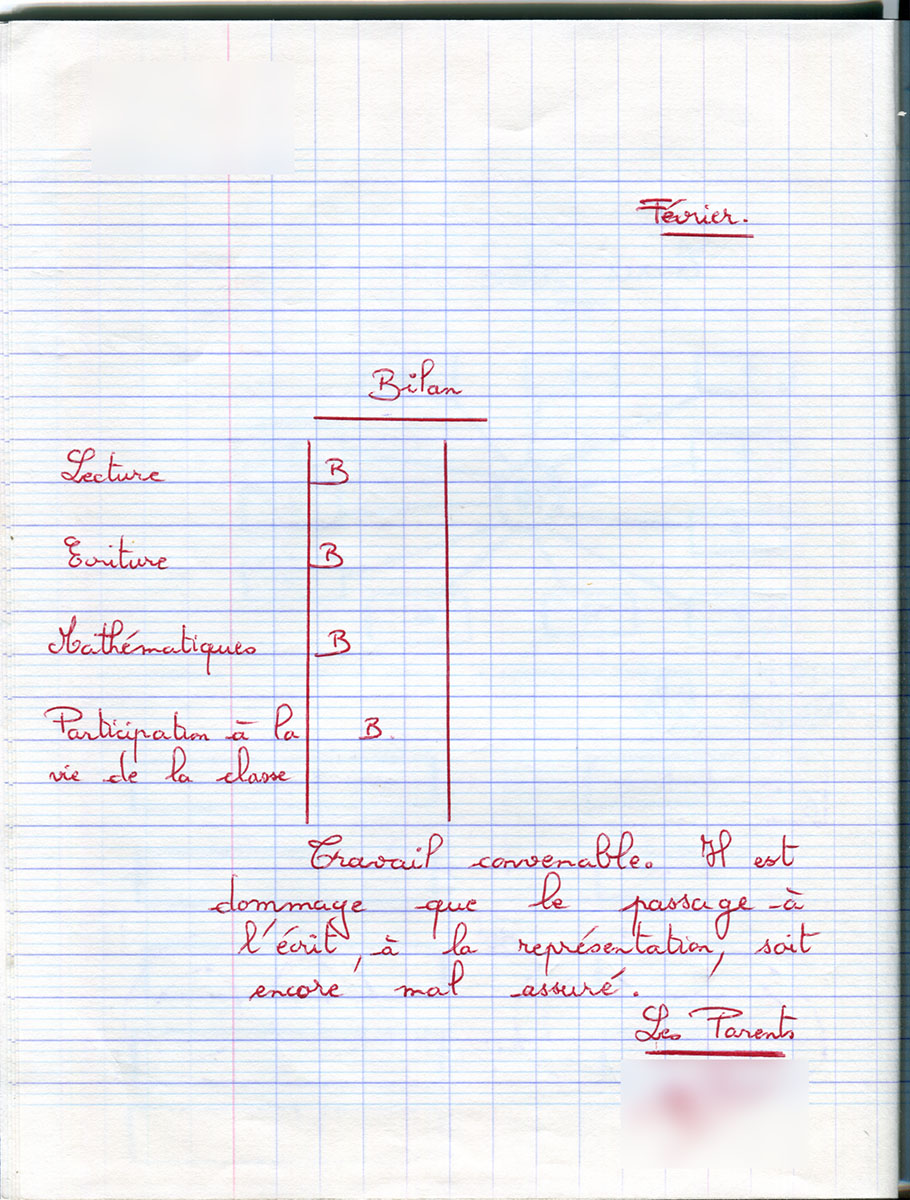 Février.
Bilan
Lecture B
Ecriture B
Mathématiques B
Participation à la B.
vie de la classe
Travail convenable. Il est
dommage que le passage à
l'écrit, à la représentation, soit
encore mal assuré.
Les Parents